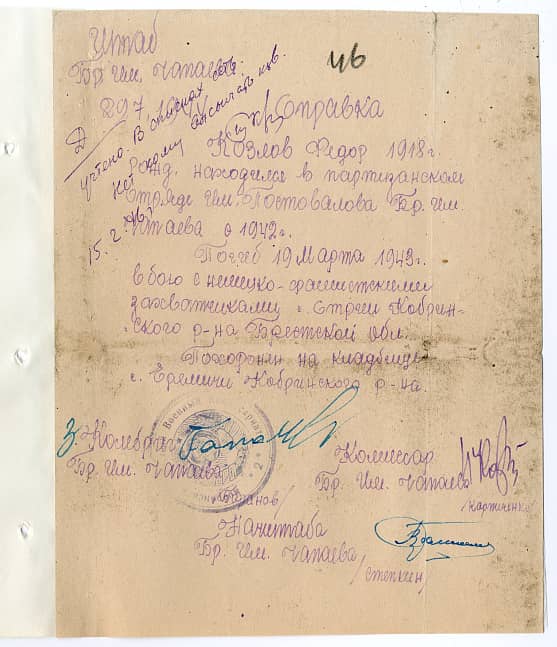 Штаб
Бр. Им. Чапаева
46
297
Справка
учтено. В списках есть
Козлов Федор 1918 г.
рожд. находился в партизанском
отряде Им. Постовалова Бр. Им.
Чапаева с 1942 г.
15. 2
Погиб 19 Марта 1943 г.
в бою с немецко-фашистскими
захватчиками с. Стрии Кобрин-
ского р-на Брестской обл.
Похоронен на кладбище
с. Еремичи Кобринского р-на.
Военный
З Комбриг
Бр. Им. Чапаева
Комиссар
Бр. Им. Чапаева
/Картченко
Начштаба
Бр. Им. Чапаева
/Степкин/